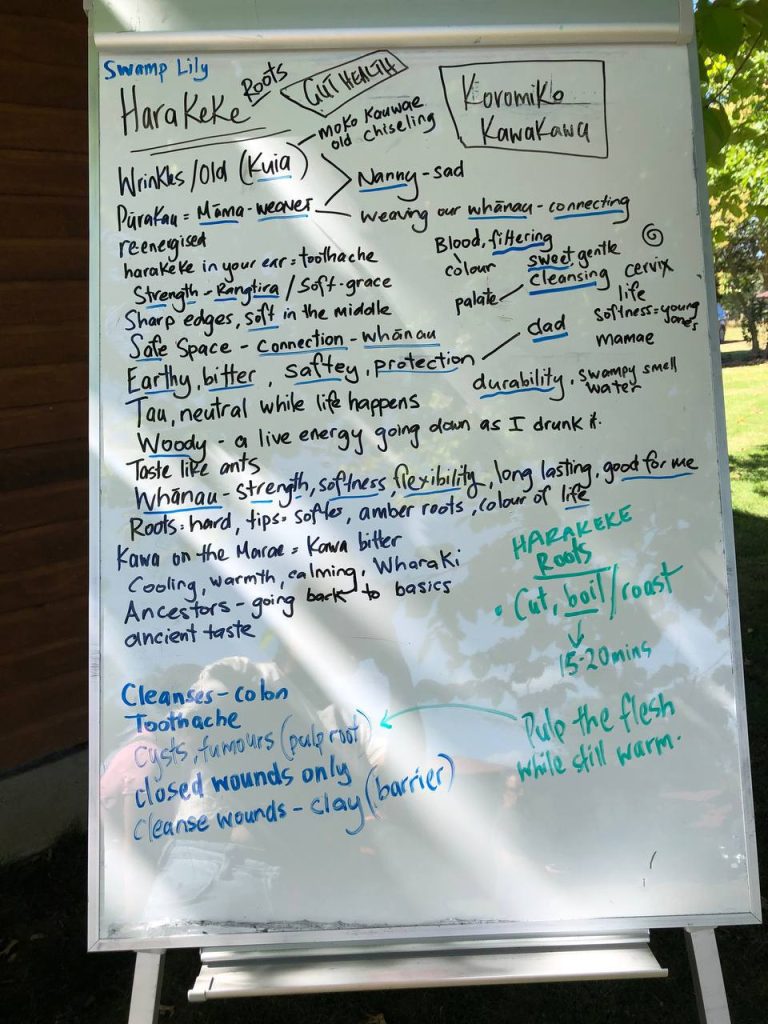 Swamp Lily
HaraKeKe Roots
GUT HEALTH
Koromiko
KawaKawa
moko kauwae
old chiseling
Wrinkles/Old (Kuia)
Nanny - sad
Pūrakau = Māma - weaver
weaving our whānau - connecting
re-energised
harakeke in your ear = toothache
Blood, filtering
colour
sweet gentle
cleansing
palate
cervix
life
softness = young ones
mamae
Strength - Rangtira / Soft-grace
Sharp edges, soft in the middle
Safe Space - connection - whānau
dad
Earthy, bitter, saftey, protection
durability, swampy smell
water
Tau, neutral while life happens
Woody - a live energy going down as I drunk it.
Taste like ants
Whānau - strength, softness, flexibility, long lasting, good for me
Roots = hard, tips = softer, amber roots, colour of life
Kawa on the Marae = Kawa bitter
Cooling, warmth, calming, Wharaki
Ancestors - going back to basics
ancient taste
HARAKEKE
Roots
• Cut, boil/roast
15-20mins
Pulp the flesh
while still warm.
Cleanses - colon
Toothache
Cysts, tumours (pulp root)
closed wounds only
Cleanse wounds - clay (barrier)